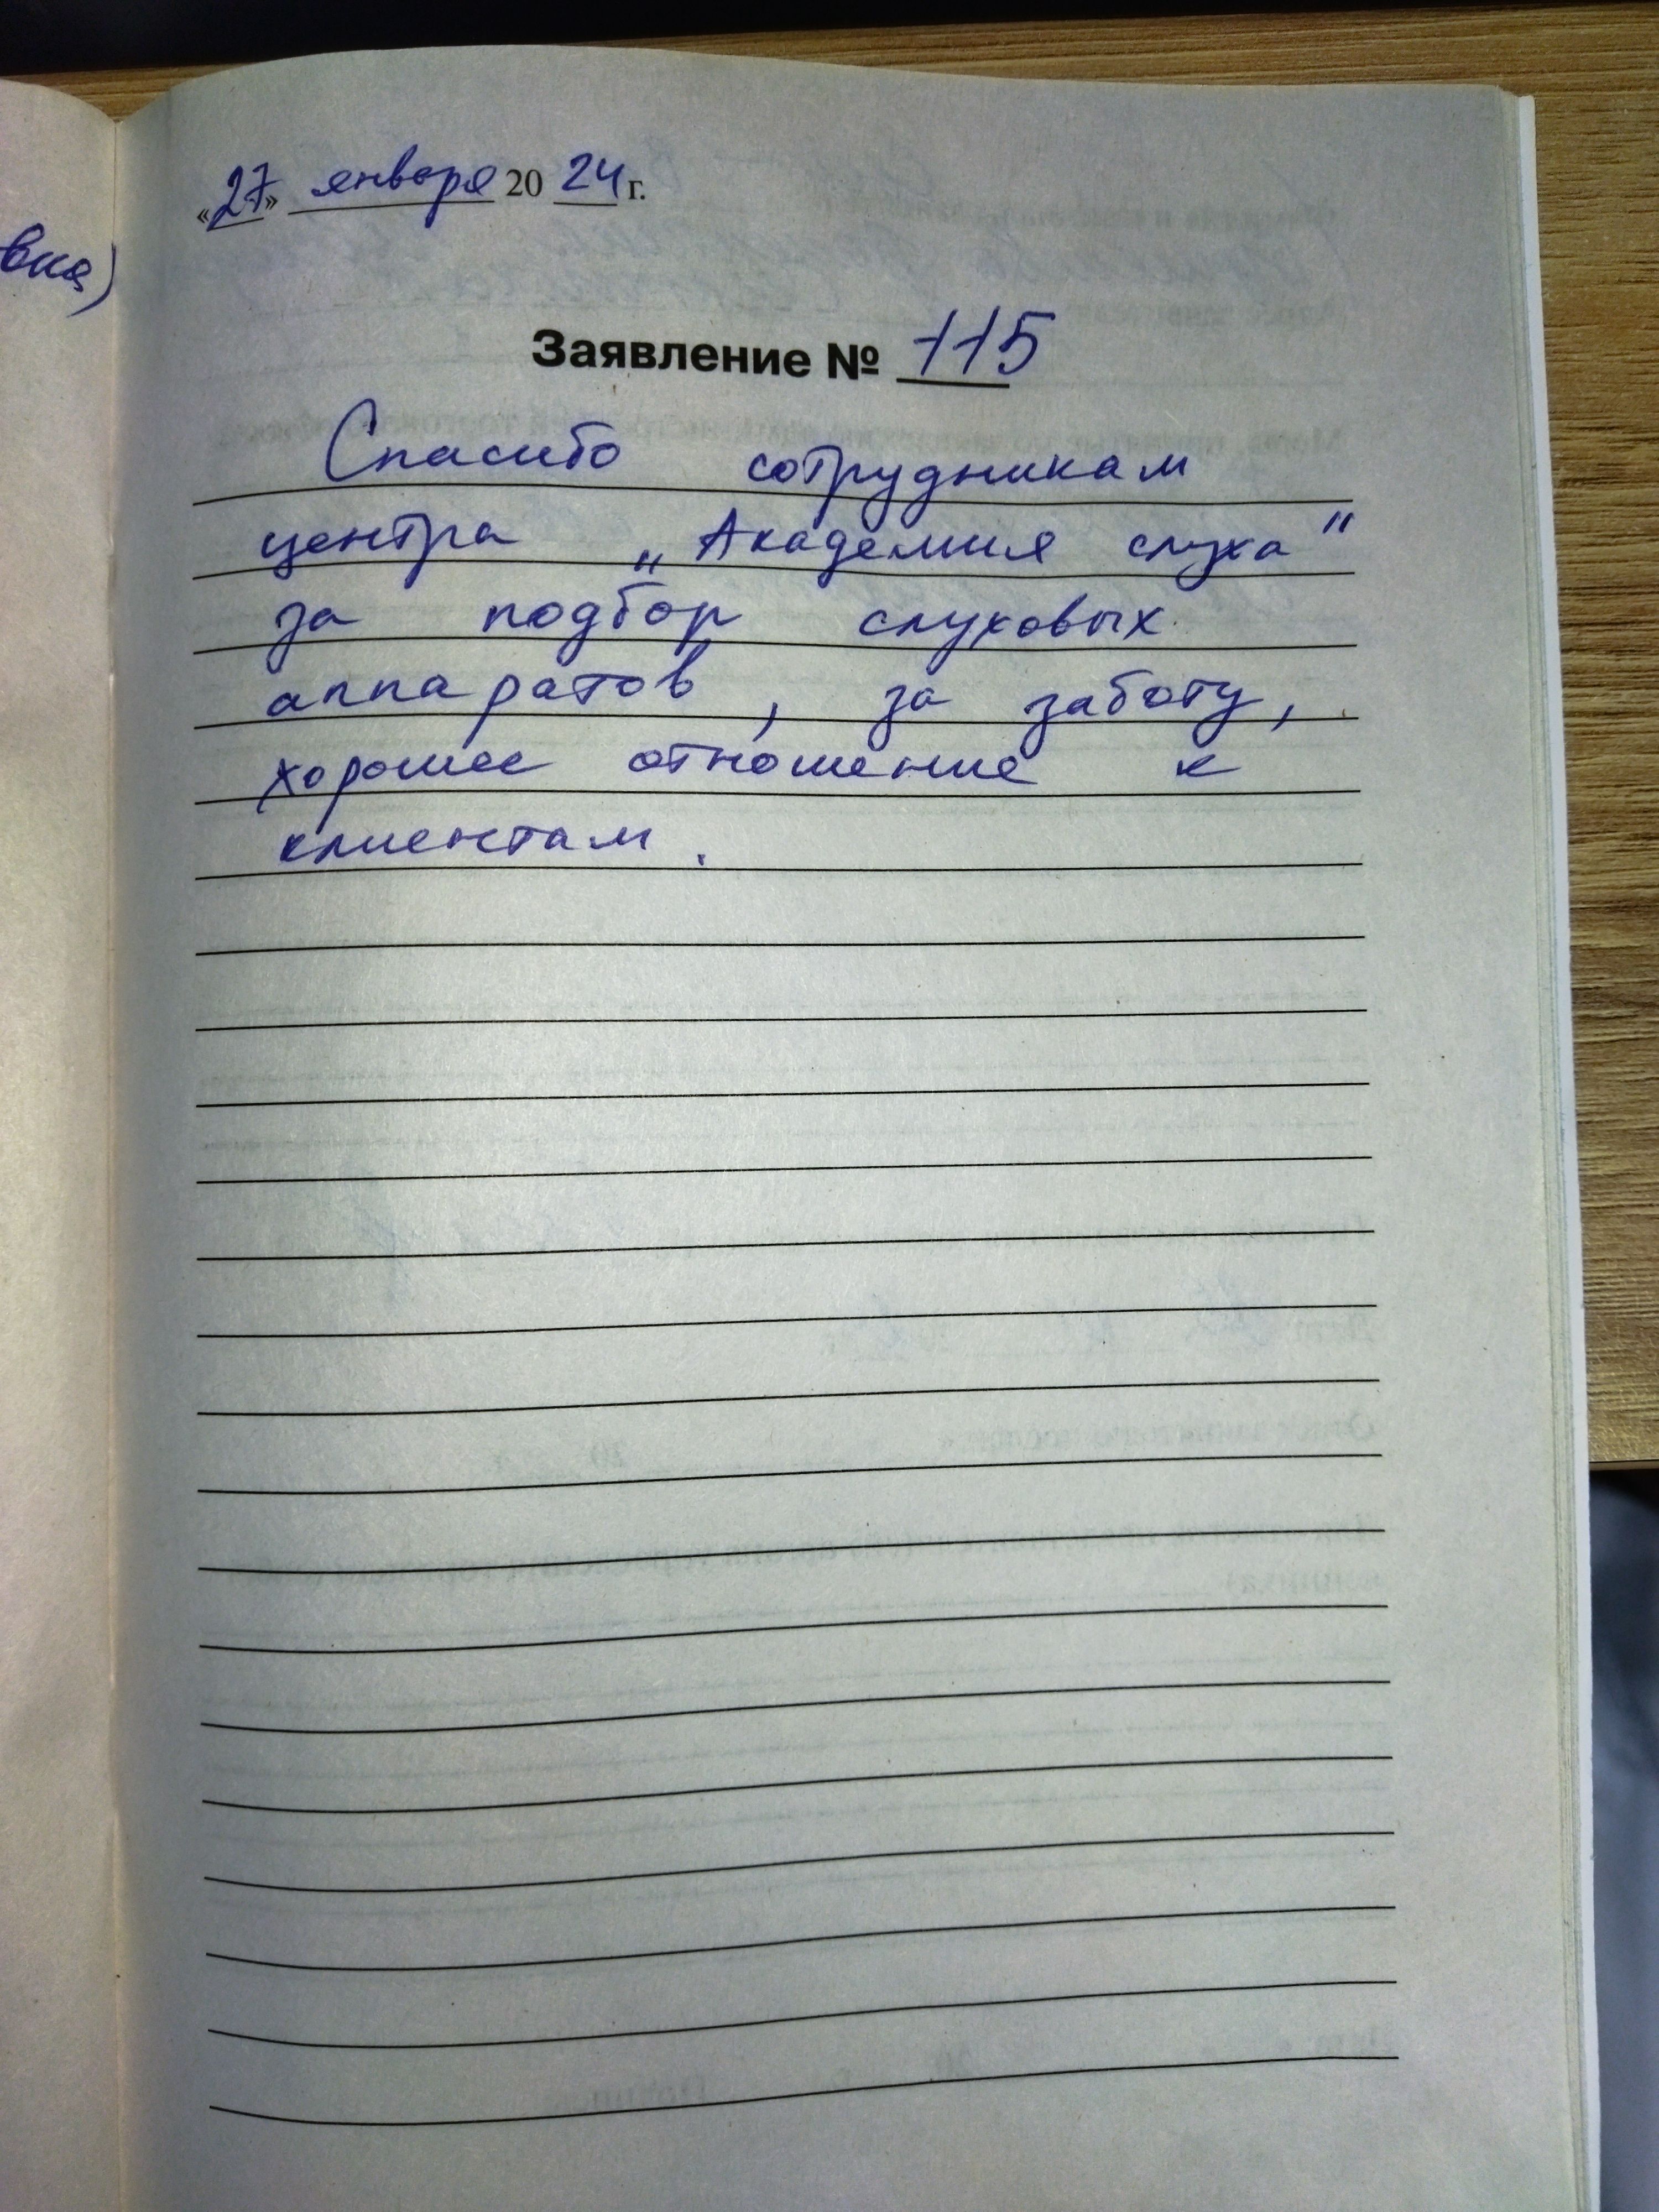 «27» января 2024 г.
вна)
Заявление № 115
Спасибо сотрудникам
центра „Академия слуха"
за подбор слуховых
аппаратов, за заботу,
хорошее отношение к
клиентам.